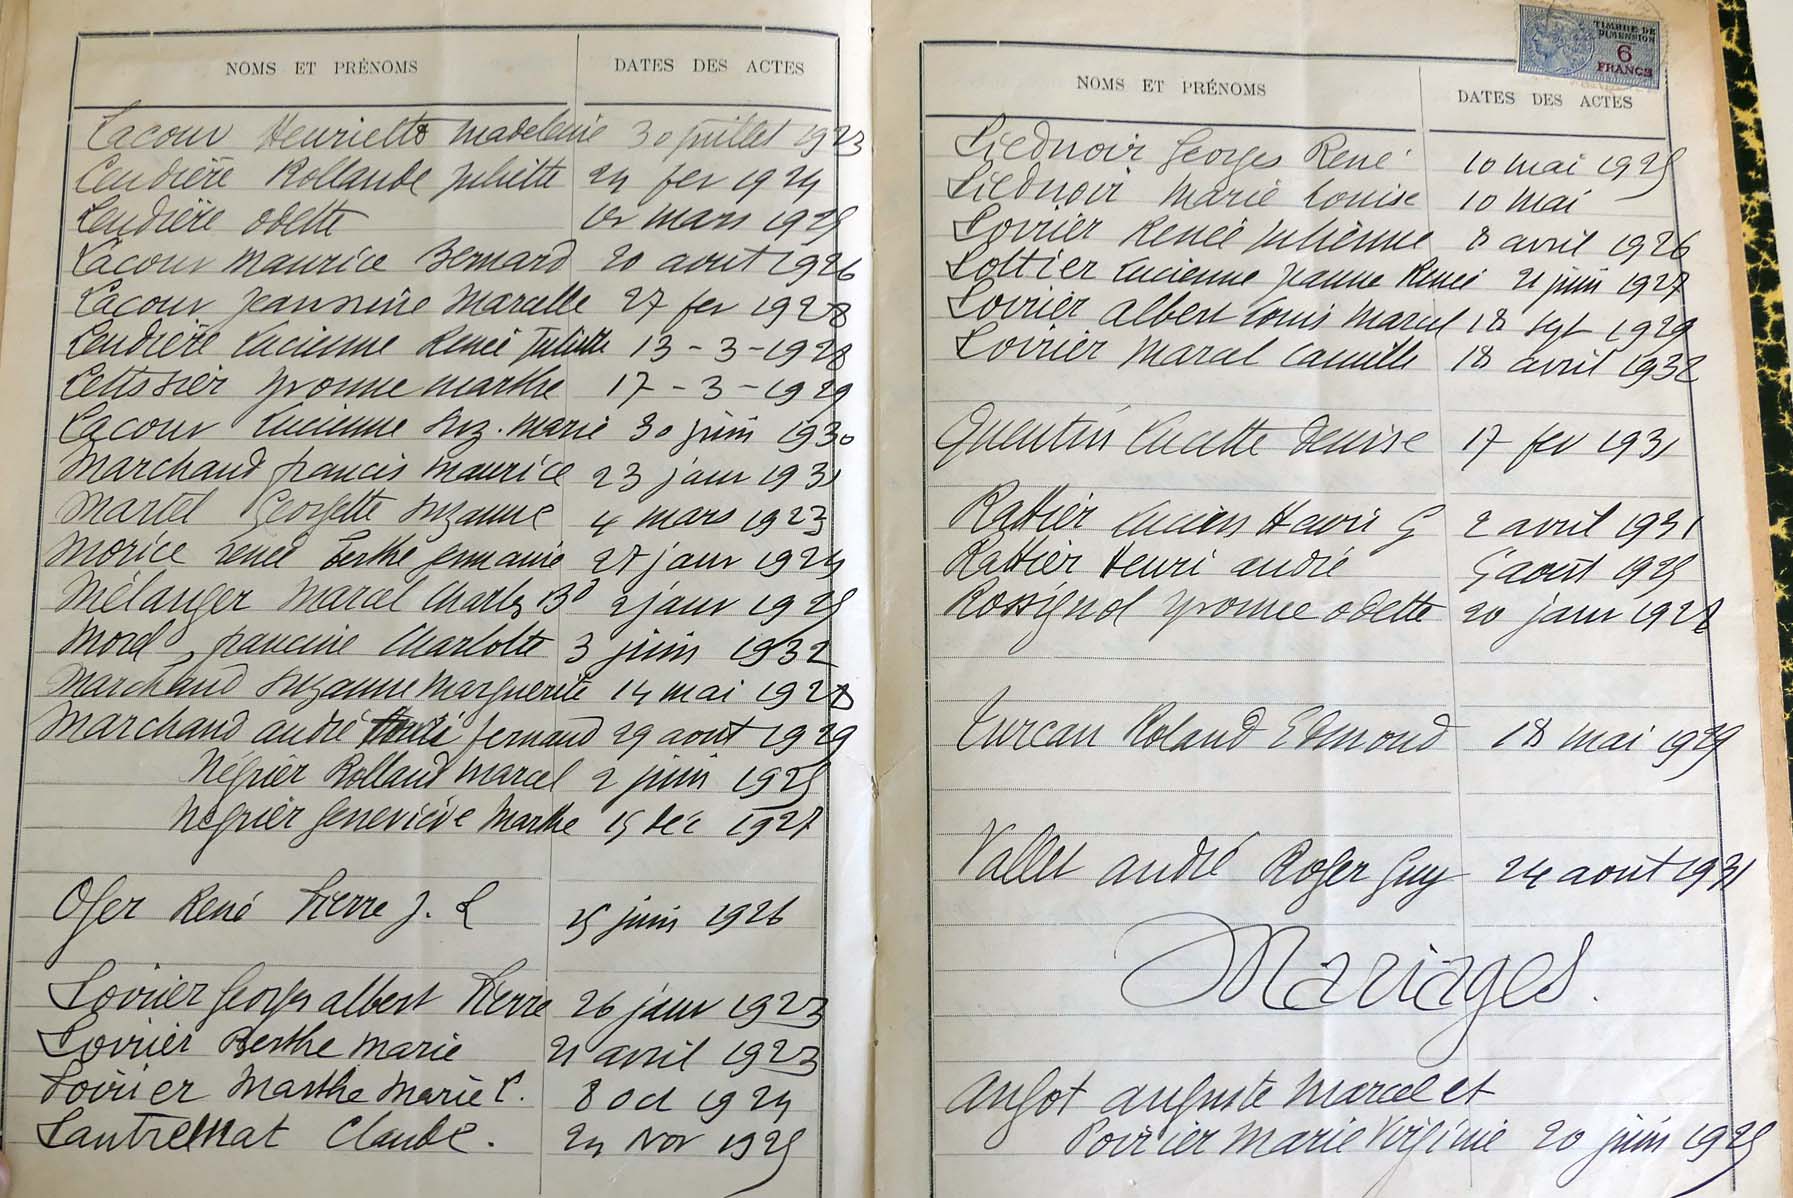 NOMS ET PRÉNOMS DATES DES ACTES
Lacour Henriette Madeleine 30 juillet 1923
Lendière Rollande Juliette 24 fev 1924
Lendière Odette 1er mars 1925
Lacour Maurice Bernard 20 aout 1926
Lacour Jeannine Marcelle 27 fev 1928
Lendière Lucienne Renée Juliette 13-3-1928
Letissier Yvonne Marthe 17-3-1929
Lacour Lucienne Suz. Marie 30 juin 1930
Marchand Francis Maurice 23 janv 1931
Martel Georgette Suzanne 4 mars 1923
Morice Renée Berthe Germaine 27 janv 1924
Mélanger Marcel Charles 2 janv 1925
Morel Francine Charlotte 3 juin 1932
Marchand Suzanne Marguerite 14 mai 1928
Marchand André Fernand 29 aout 1929
Négrier Rolland Marcel 2 juin 1925
Négrier Geneviève Marthe 15 Dec 1927
Oger René Pierre J. L 25 juin 1926
Poirier Georges Albert Pierre 26 janv 1923
Poirier Berthe Marie 21 avril 1923
Poirier Marthe Marie L. 8 Oct 1924
Pautremat Claude. 24 Nov 1925
NOMS ET PRÉNOMS DATES DES ACTES
TIMBRE DE
DIMENSION
6
FRANCS
Piednoir Georges René 10 mai 1925
Piednoir Marie Louise 10 mai
Poirier Renée Julienne 8 avril 1926
Pottier Lucienne Jeanne Renée 21 juin 1927
Poirier Albert Louis Marcel 18 sept 1929
Poirier Marcel Camille 18 avril 1932
Quentin Lucette Denise 17 fev 1931
Rattier Lucien Henri G 2 avril 1931
Rattier Henri André 5 aout 1925
Rossignol Yvonne Odette 20 janv 1928
Turcan Roland Edmond 18 mai 1929
Vallet André Roger Guy 24 aout 1931
Mariages.
Angot Auguste Marcel et
Poirier Marie Virginie 20 juin 1925